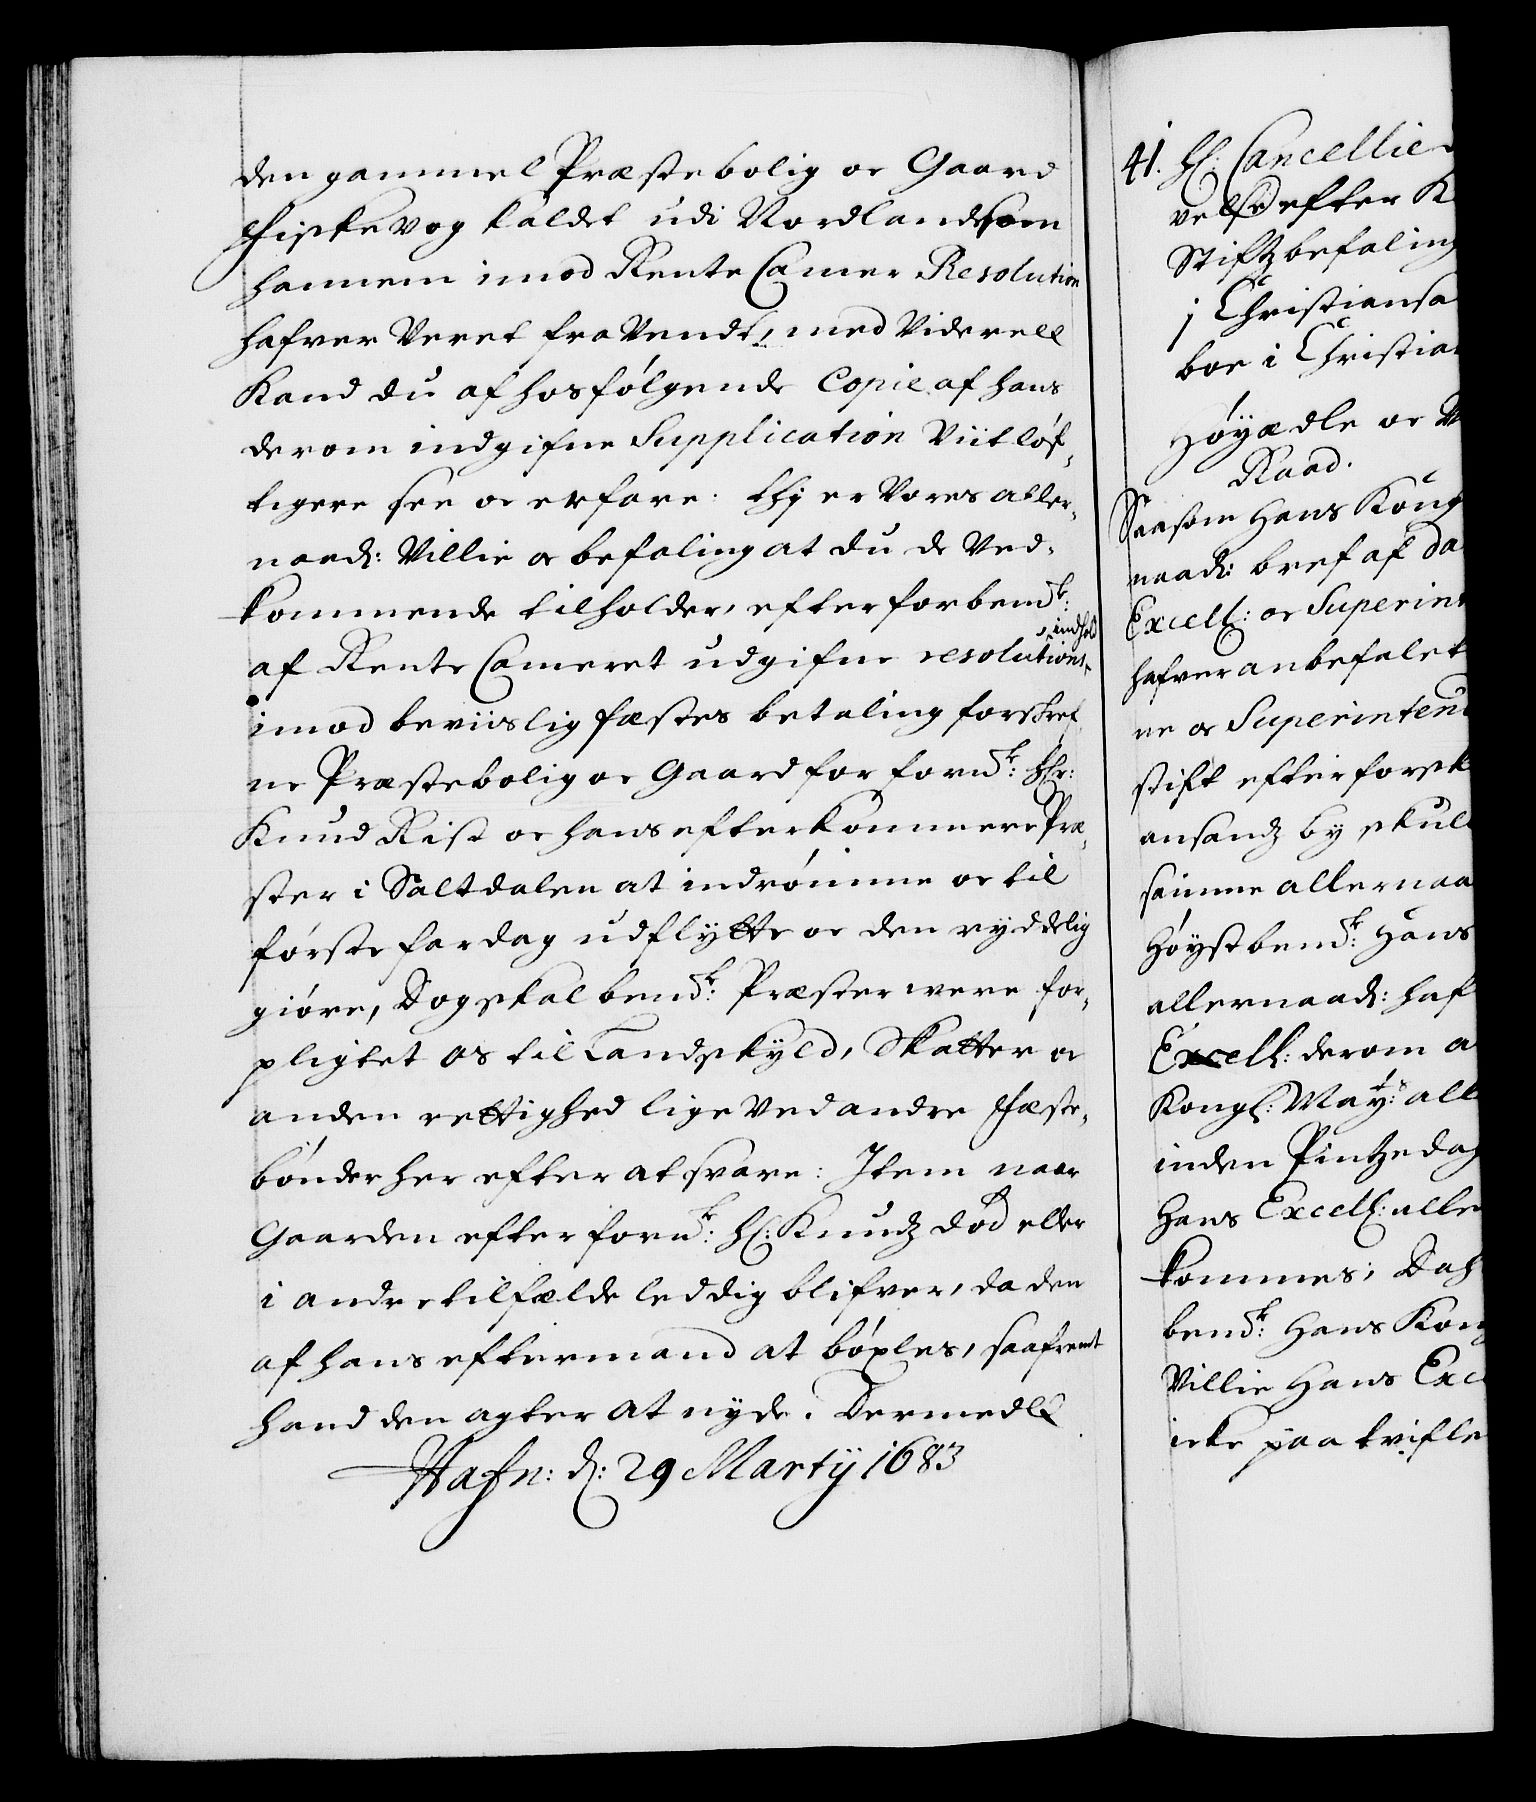 den gammel Præstebolig oc Gaard
Fiskevog kaldet udi Nordland som
hannem imod Rente Camer Resolution
hafver veret fravendt, med videre
Kand du af hosfølgende Copie af hans
derom indgifne Supplication Viitløf-
tigere see oc erfare: thj er Vores aller-
naad: Villie oc befaling at du de Ved-
kommende tilholder, efter forbem.te:
af Rente Cameret udgifne resolutions indhold
imod beviislig fæstes betaling forskref
ne Præstebolig oc Gaard for forn.te: Hr:
Knud Rist oc hans efterkommere Præ-
ster i Saltdalen at indrømme oc til
første fardag udflytte oc den ryddelig
giøre, Dog skal bem.te: Præster were for-
pligtet os til Landskyld, Skatter oc
anden rettighed lige ved andre Fæste-
bønder her efter at svare: Item naar
Gaarden efter forn.te: H: Knudz død eller
i andre tilfælde leddig blifver, da den
af hans eftermand at bøxles, saafremt
hand den agter at nyde. Dermed
Hafn: d: 29 Martij 1683
41. H: Cancellie
velse efter K
Stiftz befaling
i Christiansa
boe i Christian
Høyædle oc V
Raad.
Saasom Hans Kong
naad: bref af da
Excell: oc Superint
hafver anbefalet
ne oc Superintend
stift efter forsk
ansandz by skul
samme allernaa
Høystbem.te: Hans
allernaad: haf
Excell: derom a
Kongl: May.ts: all
inden Pintzedag
Hans Excell: alle
kommes; Dog
bem.te: Hans Kong
Villie Hans Exc
icke paa tvifle